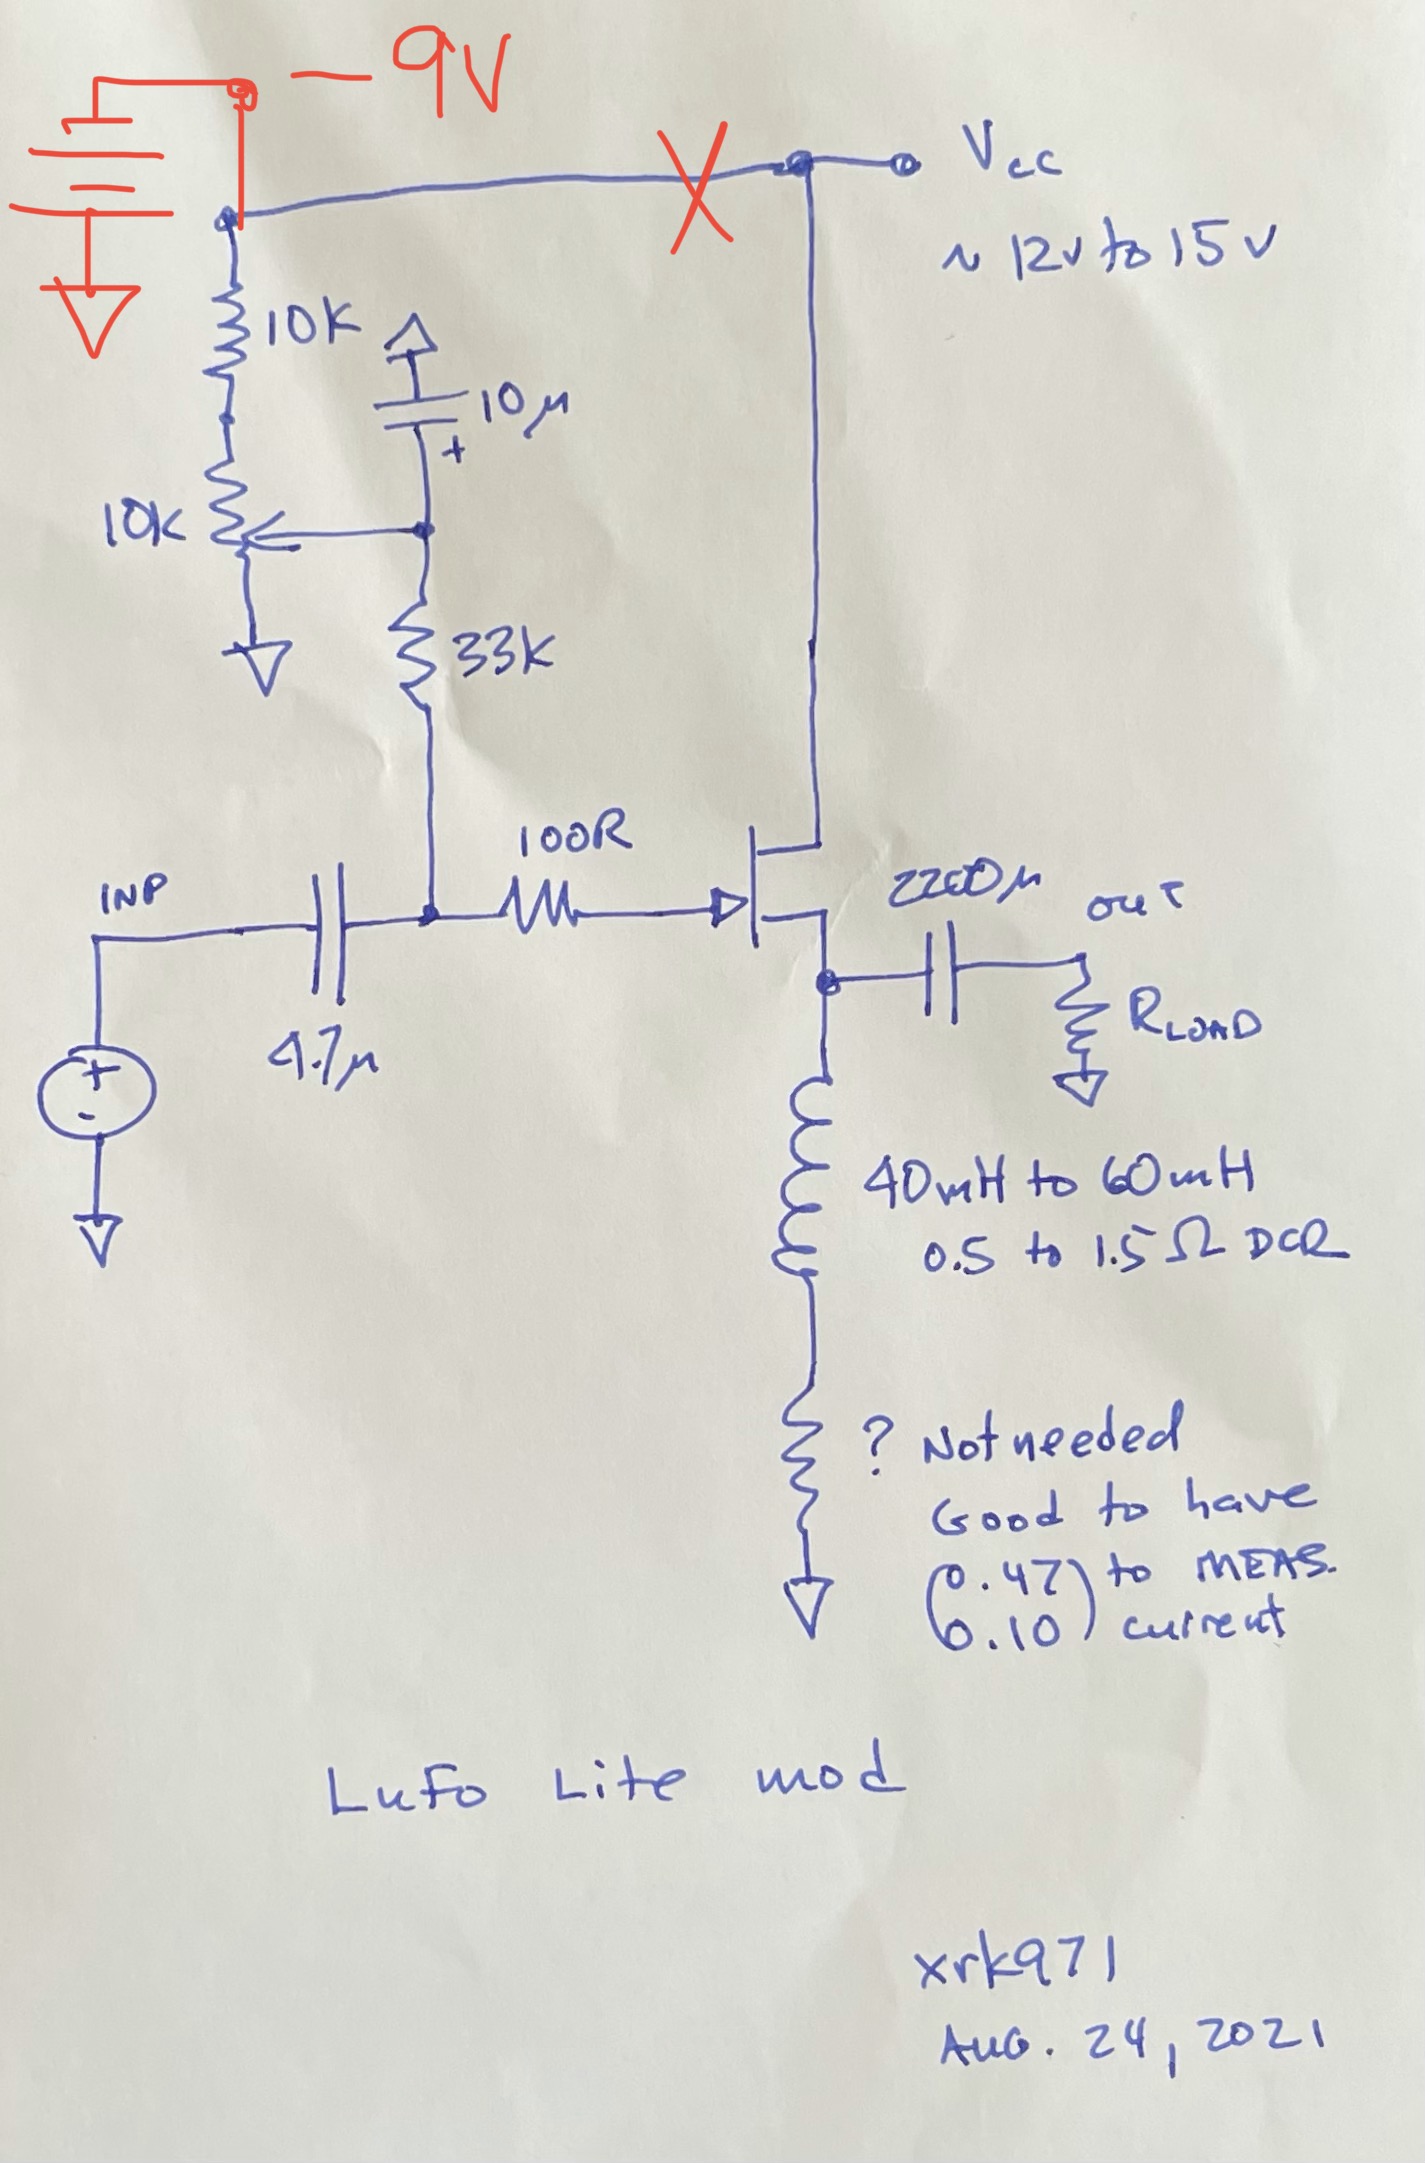 - 9V
Vcc
~ 12v to 15v
10K
10μ
+
10K
33K
100R
INP
2200μ
OUT
4.7μ
RLOAD
+
-
40mH to 60mH
0.5 to 1.5Ω DCR
? Not needed
Good to have
(0.47) to MEAS.
(0.10) current
LuFo Lite mod
xrk971
AUG. 24, 2021